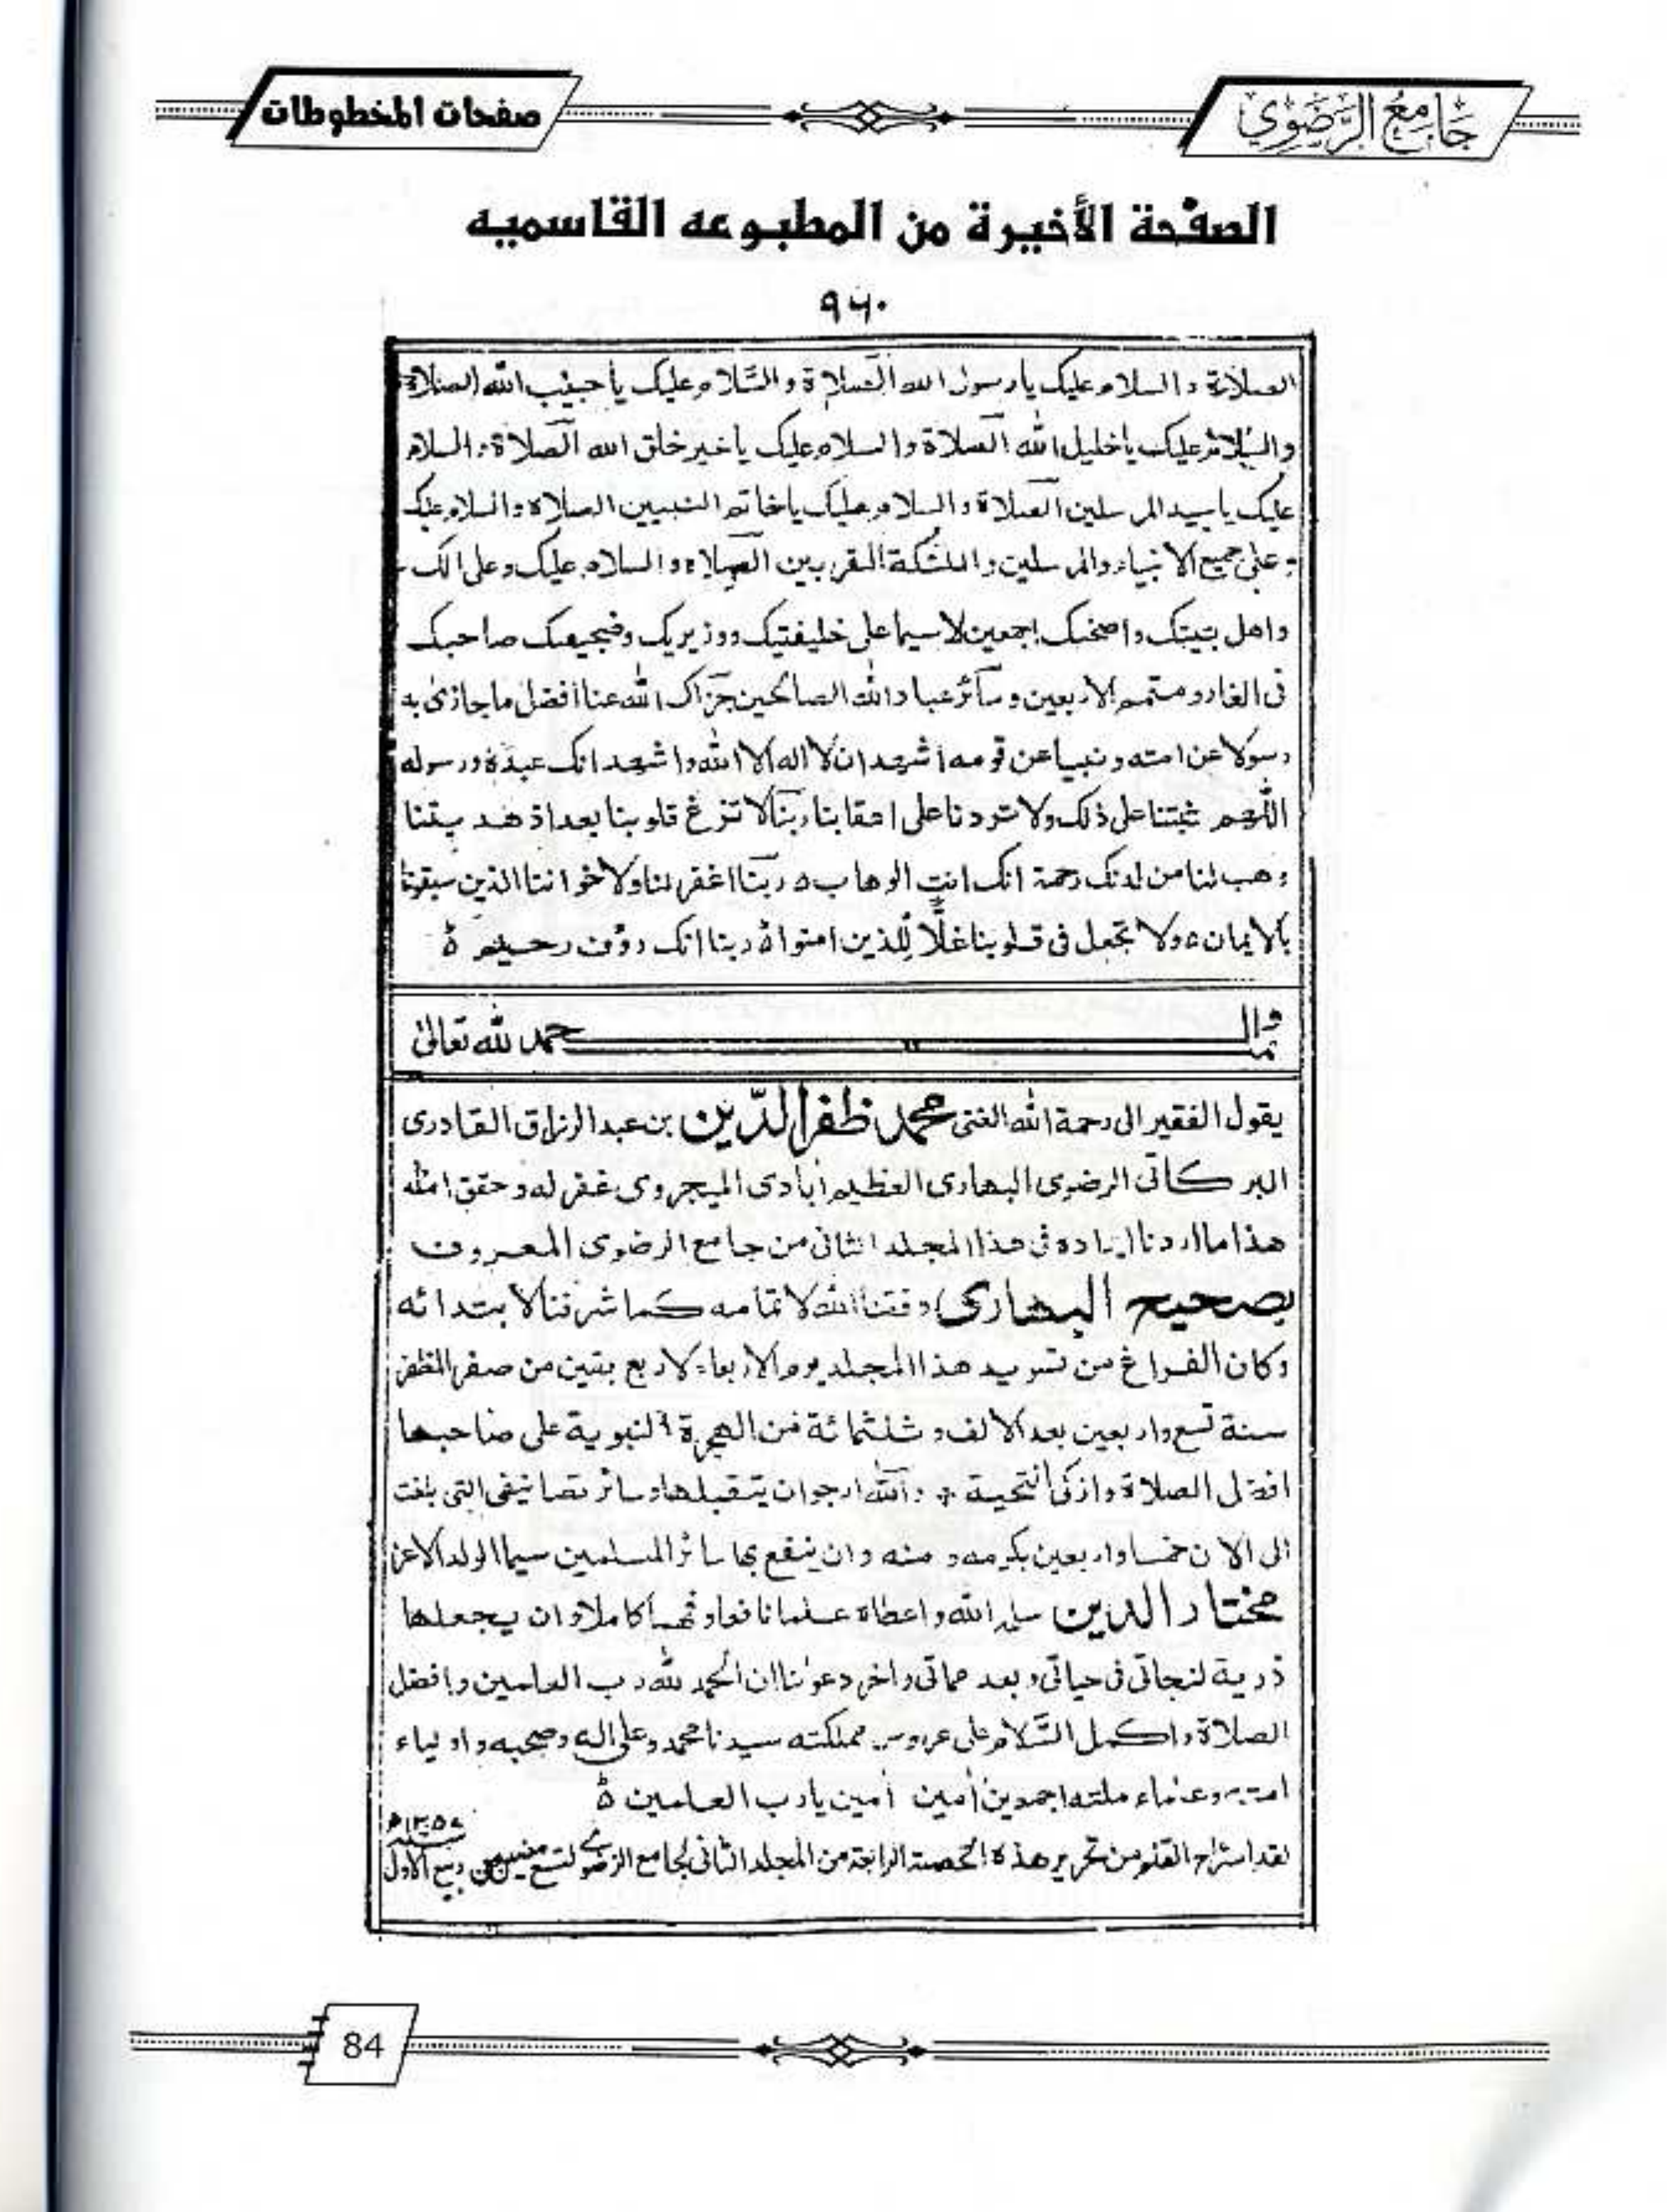 جَامِعُ الرَّضَوِي
صفحات المخطوطات
الصفحة الأخيرة من المطبوعه القاسميه
۹۶۰
الصلاة والسلام عليك يا رسول الله الصلاة والسلام عليك يا حبيب الله الصلاة
والسلام عليك يا خليل الله الصلاة والسلام عليك يا خير خلق الله الصلاة والسلام
عليك يا سيد المرسلين الصلاة والسلام عليك يا خاتم النبيين الصلاة والسلام عليك
وعلى جميع الانبياء والمرسلين والملئكة المقربين الصلاة والسلام عليك وعلى الك
واهل بيتك واصحبك اجمعين لا سيما على خليفتيك ووزيريك وضجيعيك صاحبك
فى الغار ومتمم الاربعين وسائر عباد الله الصالحين جزاك الله عنا افضل ما جازى به
رسولا عن امته ونبيا عن قومه اشهد ان لا اله الا الله واشهد انك عبده ورسوله
اللهم ثبتنا على ذلك ولا تردنا على اعقابنا ربنا لا تزغ قلوبنا بعد اذ هديتنا
وهب لنا من لدنك رحمة انك انت الوهاب ه ربنا اغفر لنا ولاخواننا الذين سبقونا
بالايمان ولا تجعل فى قلوبنا غلًّا للذين امنوا ربنا انك رؤف رحيم ه
حمد لله تعالى
يقول الفقير الى رحمة الله الغنى محمد ظفر الدين بن عبد الرزاق القادرى
البركاتى الرضوى البهارى العظيم آبادى الميجروى غفر له وحقق امله
هذا ما اردنا ايراده فى هذا المجلد الثانى من جامع الرضوى المعروف
بصحيح البهارى وفقنا الله لاتمامه كما شرفنا لابتدائه
وكان الفراغ من تسويد هذا المجلد يوم الاربعاء لاربع بقين من صفر المظفر
سنة تسع واربعين بعد الالف وثلثمائة من الهجرة النبوية على صاحبها
افضل الصلاة وازكى التحية والله ارجو ان يتقبلها وسائر تصانيفى التى بلغت
الى الان خمسا واربعين بكرمه ومنه وان ينفع بها سائر المسلمين سيما الولد الاعز
مختار الدين سلمه الله واعطاه علما نافعا وفهما كاملا وان يجعلها
ذريعة لنجاتى فى حياتى وبعد مماتى واخر دعوانا ان الحمد لله رب العالمين وافضل
الصلاة واكمل السلام على عروس مملكته سيدنا محمد وعلى اله وصحبه واولياء
امته وعلماء ملته اجمعين آمين آمين يا رب العالمين ه
لقد استراح القلم من تحرير هذه الحصة الرابعة من المجلد الثانى لجامع الرضوى لتسع مضين من ربيع الاول
84